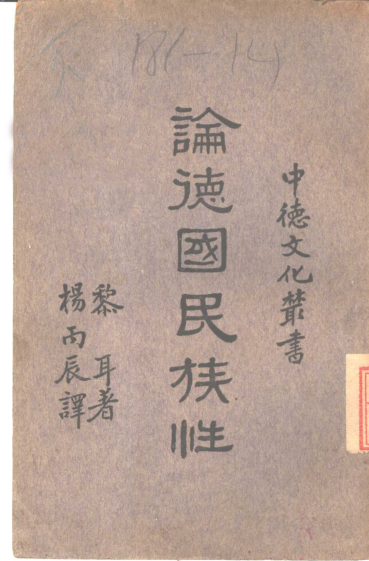 中德文化叢書
論德國民族性
黎耳著
楊丙辰譯
186-14